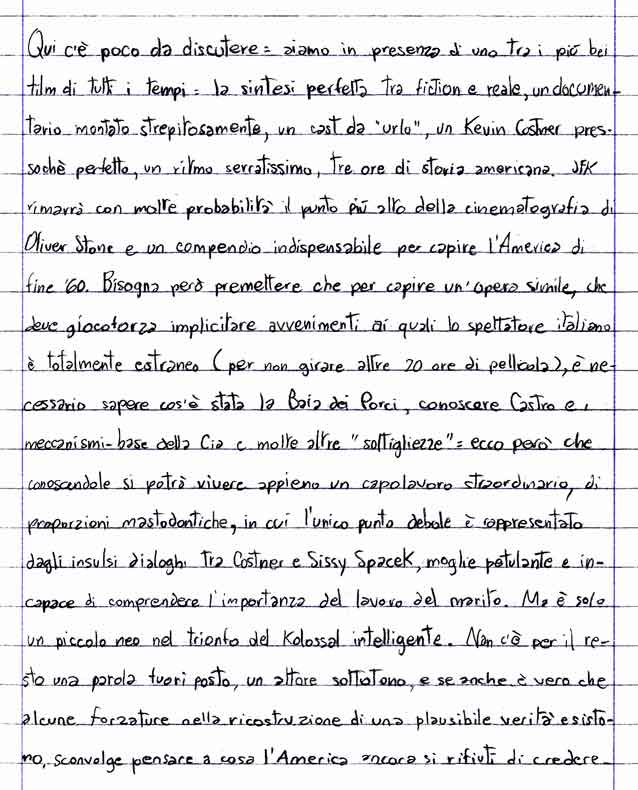 Qui c'è poco da discutere: siamo in presenza di uno tra i più bei
film di tutti i tempi: la sintesi perfetta tra fiction e reale, un documen-
tario montato strepitosamente, un cast da "urlo", un Kevin Costner pres-
sochè perfetto, un ritmo serratissimo, tre ore di storia americana. JFK
rimarrà con molte probabilità il punto più alto della cinematografia di
Oliver Stone e un compendio indispensabile per capire l'America di
fine '60. Bisogna però premettere che per capire un'opera simile, che
deve giocoforza implicitare avvenimenti ai quali lo spettatore italiano
è totalmente estraneo (per non girare altre 20 ore di pellicola), è ne-
cessario sapere cos'è stata la Baia dei Porci, conoscere Castro e i
meccanismi-base della Cia e molte altre "sottigliezze": ecco però che
conoscendole si potrà vivere appieno un capolavoro straordinario, di
proporzioni mastodontiche, in cui l'unico punto debole è rappresentato
dagli insulsi dialoghi tra Costner e Sissy Spacek, moglie petulante e in-
capace di comprendere l'importanza del lavoro del marito. Ma è solo
un piccolo neo nel trionfo del Kolossal intelligente. Non c'è per il re-
sto una parola fuori posto, un attore sottotono, e se anche è vero che
alcune forzature nella ricostruzione di una plausibile verità esisto-
no, sconvolge pensare a cosa l'America ancora si rifiuti di credere.